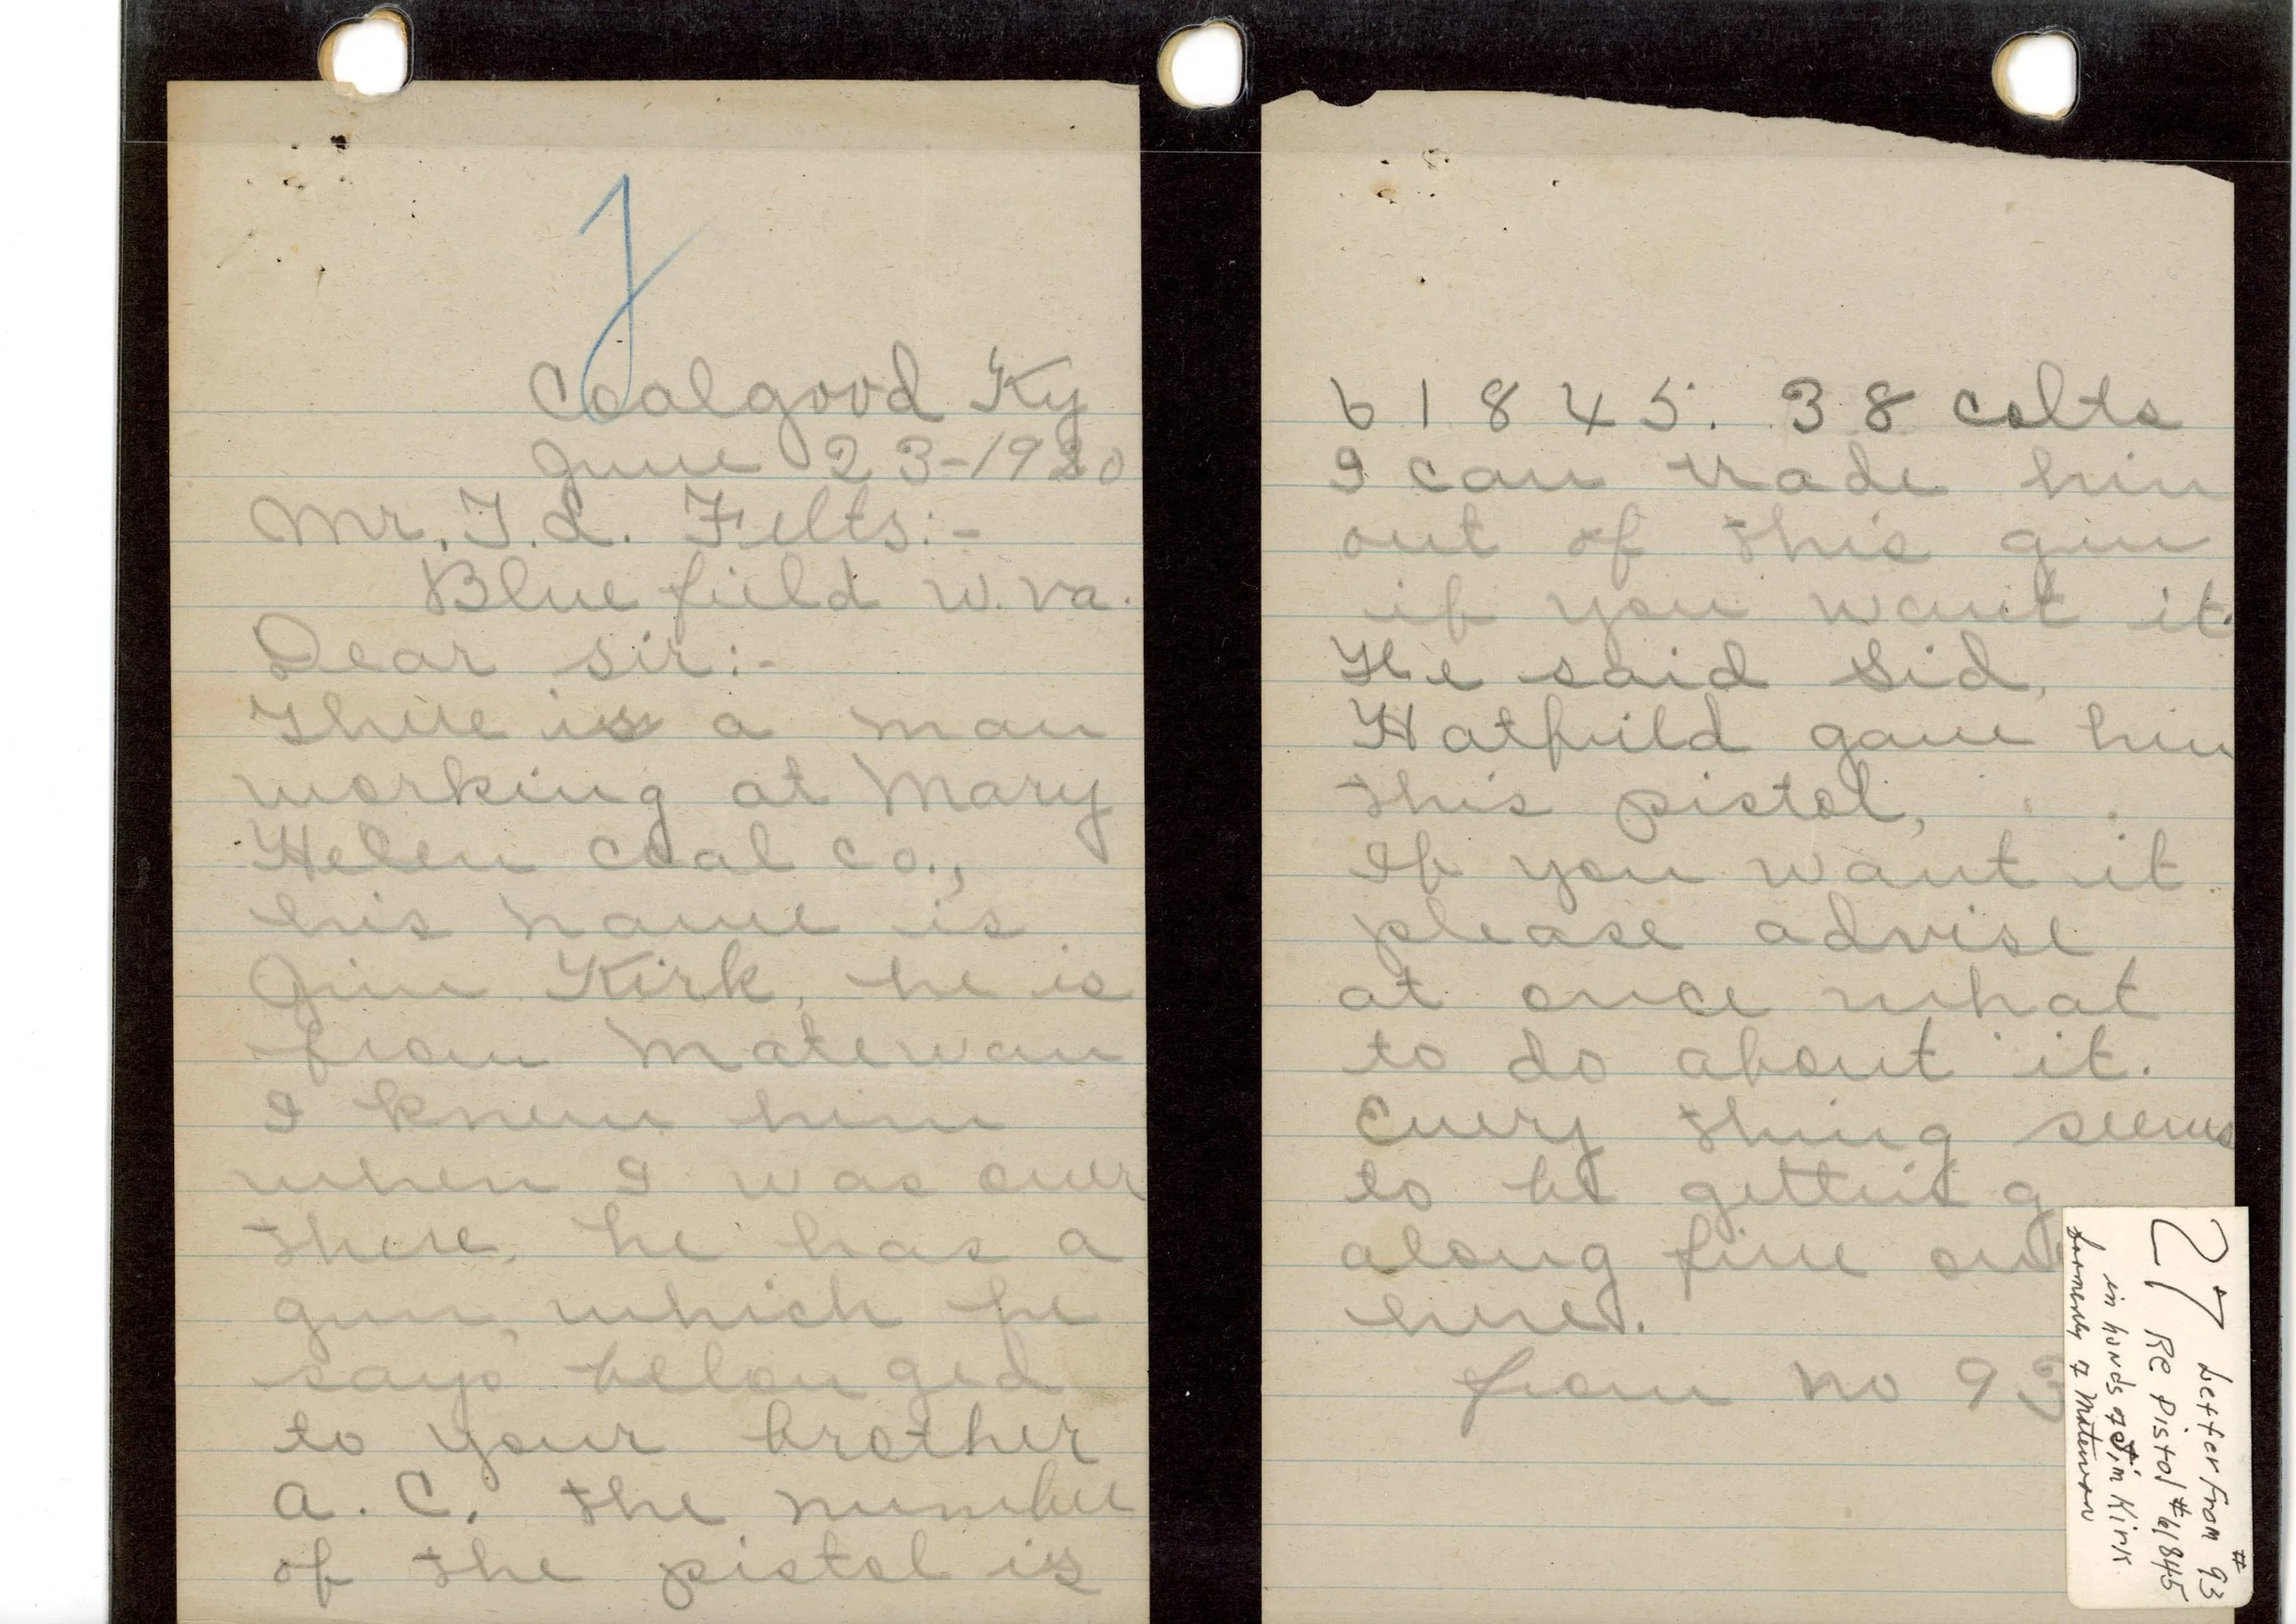 J
Coalgood Ky
June 23-1920
Mr. T.L. Felts:-
Bluefield W.Va.
Dear sir:-
There is a man
working at Mary
Helen Coal Co.,
his name is
Jim Kirk, he is
from Matewan
I knew him
when I was over
there, he has a
gun, which he
says belonged
to your brother
A.C. the number
of the pistol is
61845. 38 colts
I can trade him
out of this gun
if you want it.
He said Sid,
Hatfield gave him
this pistol,
If you want it
please advise
at once what
to do about it.
Every thing seems
to be getting
along fine out
here.
from no 93
27 Letter from #93
Re Pistol #61845
in hands of Jim Kirk
formerly of Matewan